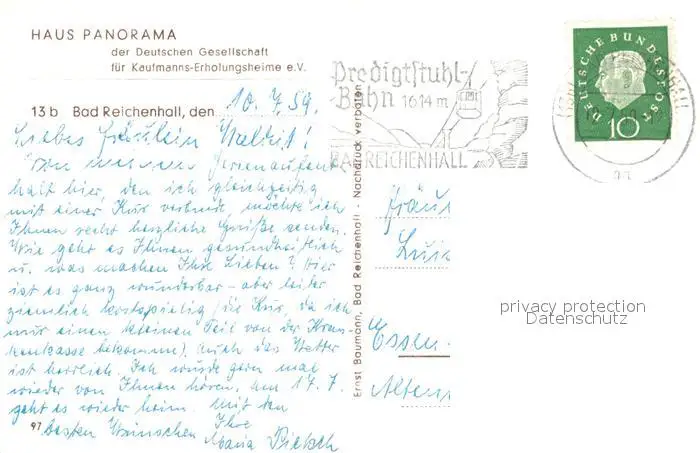 HAUS PANORAMA
der Deutschen Gesellschaft
für Kaufmanns-Erholungsheime e.V.
13 b Bad Reichenhall, den 10. 7. 59.
Liebes Fräulein Waltrit!
Von meinem Ferienaufent
halt hier, den ich gleichzeitig
mit einer Kur verbinde, möchte ich
Ihnen recht herzliche Grüße senden.
Wie geht es Ihnen gesundheitlich
u. was machen Ihre Lieben? Hier
ist es ganz wunderbar - aber leider
ziemlich kostspielig (die Kur, da ich
nur einen kleinen Teil von der Kran-
kenkasse bekomme). Auch das Wetter
ist herrlich. Ich würde gern mal
wieder von Ihnen hören. Am 17. 7.
geht es wieder heim. Mit den
97 besten Wünschen Ihre
Maria
Ernst Baumann, Bad Reichenhall - Nachdruck verboten
Predigtstuhl-
Bahn 1614 m
BAD REICHENHALL
DEUTSCHE BUNDESPOST
10
Fräul
Luis
Essen-
Alten
privacy protection
Datenschutz